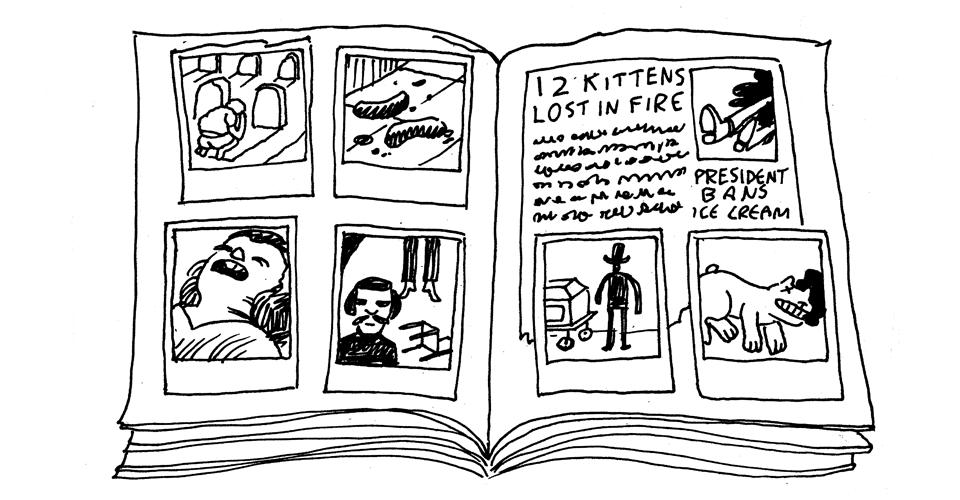 12 KITTENS
LOST IN FIRE
PRESIDENT
BANS
ICE CREAM